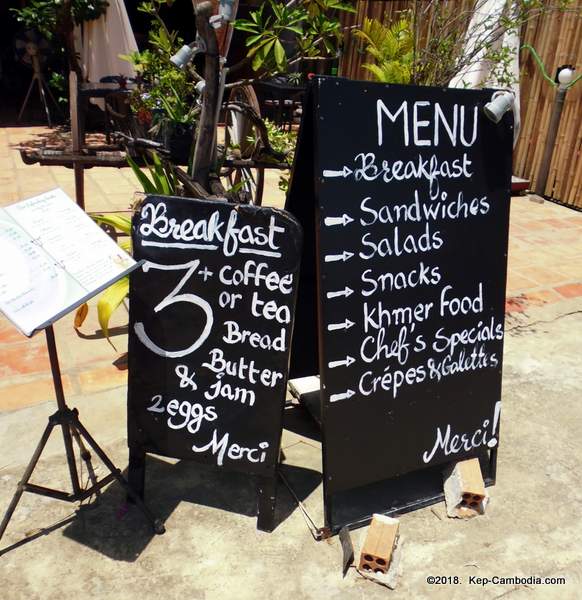 Breakfast
3 + coffee
or tea
Bread
Butter
& jam
2 eggs
Merci
MENU
Breakfast
Sandwiches
Salads
Snacks
Khmer Food
Chef's Specials
Crêpes & Galettes
Merci!
©2018. Kep-Cambodia.com